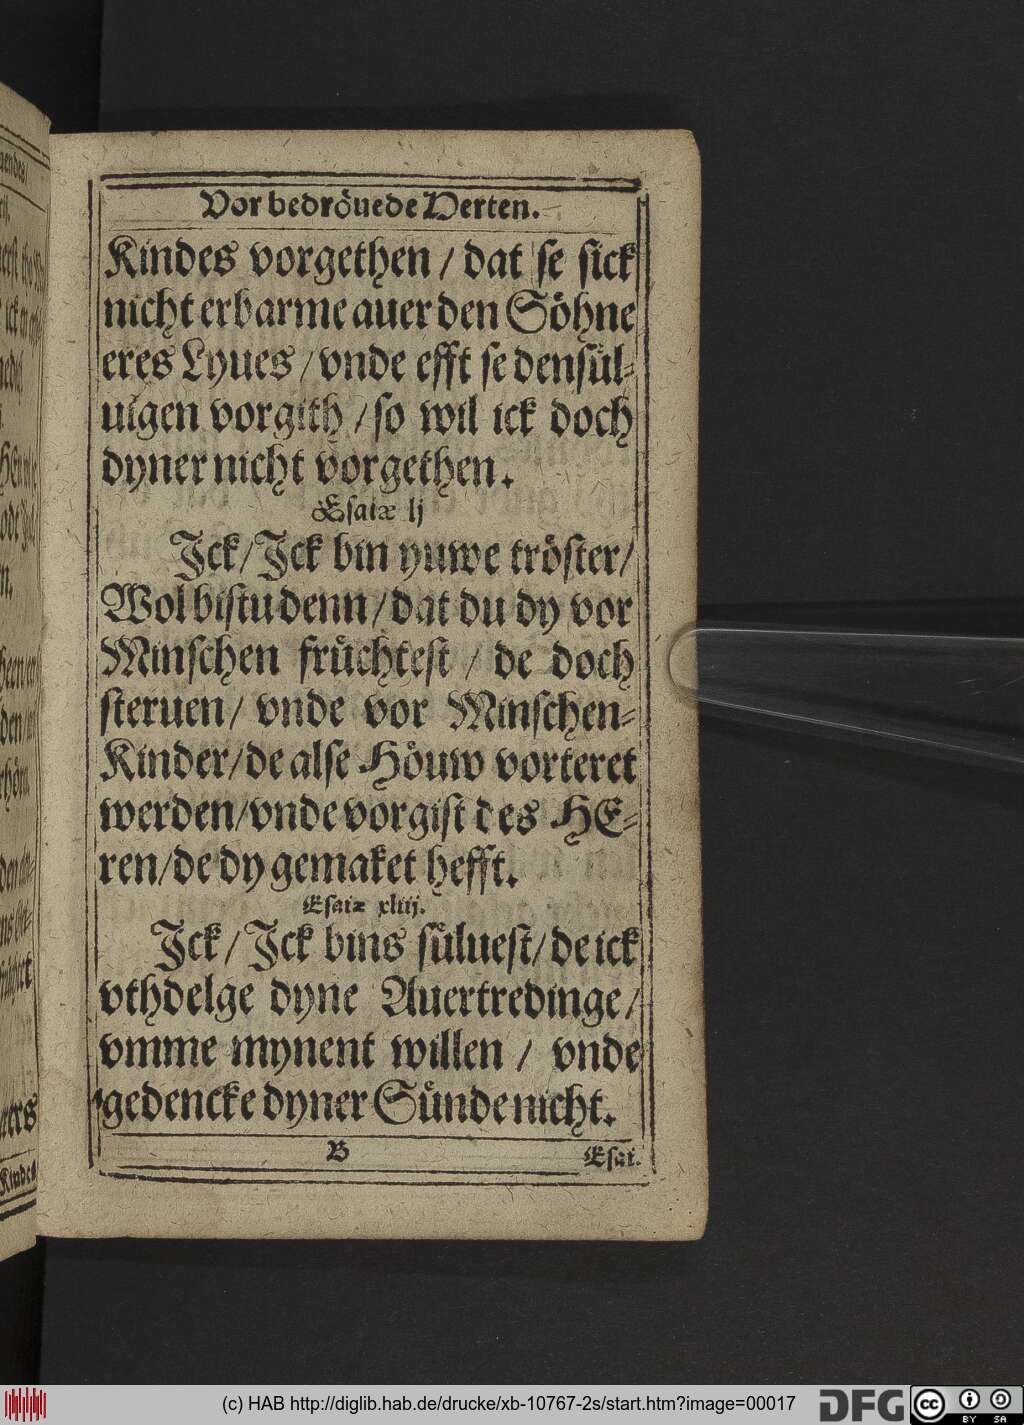 Vor bedröuede Herten.
Kindes vorgethen / dat se sick
nicht erbarme auer den Söhne
eres Lyues / vnde efft se densül-
uigen vorgith / so wil ick doch
dyner nicht vorgethen.
Esaiæ lj
Jck / Jck bin yuwe tröster /
Wol bistu denn / dat du dy vor
Minschen früchtest / de doch
steruen / vnde vor Minschen-
Kinder / de alse Höuw vorteret
werden / vnde vorgist des HE-
ren / de dy gemaket hefft.
Esaiæ xliij.
Jck / Jck bins süluest / de ick
vthdelge dyne Auertredinge /
vmme mynent willen / vnde
gedencke dyner Sünde nicht.
B
Esai.
Kindes
(c) HAB http://diglib.hab.de/drucke/xb-10767-2s/start.htm?image=00017
DFG
cc
BY SA